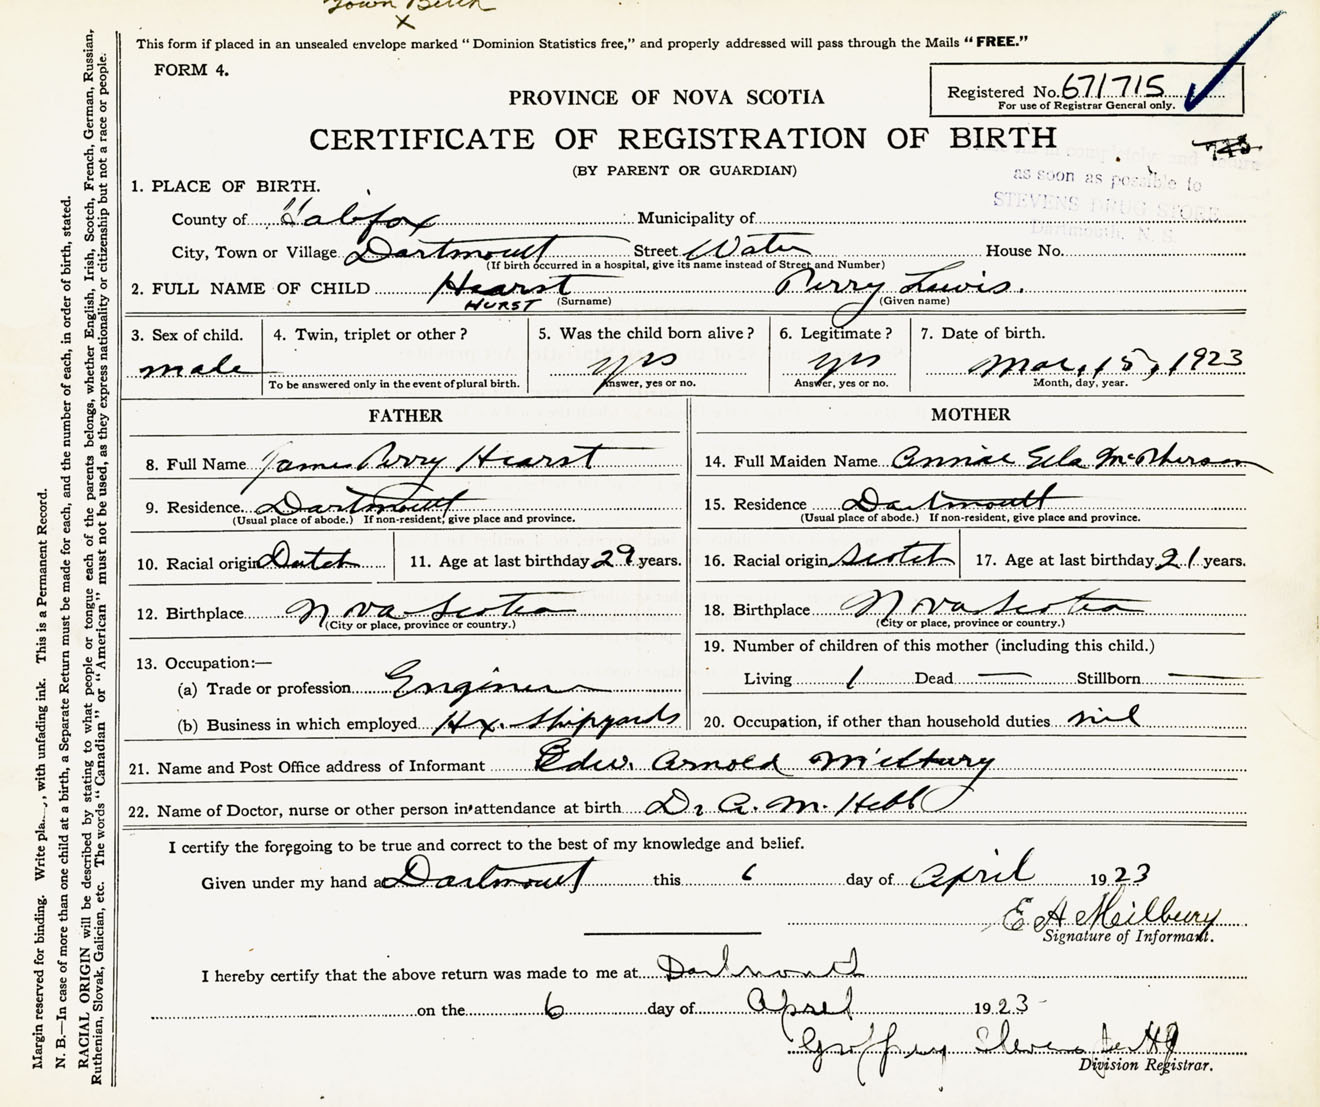 Town Birth
X
This form if placed in an unsealed envelope marked "Dominion Statistics free," and properly addressed will pass through the Mails "FREE."
FORM 4.
Registered No. 671715
For use of Registrar General only.
PROVINCE OF NOVA SCOTIA
CERTIFICATE OF REGISTRATION OF BIRTH
(BY PARENT OR GUARDIAN)
as soon as possible to
STEVENS DRUG STORE
Dartmouth, N. S.
1. PLACE OF BIRTH.
County of Halifax Municipality of
City, Town or Village Dartmouth Street Water House No.
(If birth occurred in a hospital, give its name instead of Street and Number)
2. FULL NAME OF CHILD Hearst Perry Lewis.
HURST (Surname) (Given name)
3. Sex of child. 4. Twin, triplet or other? 5. Was the child born alive? 6. Legitimate? 7. Date of birth.
male yes yes Mar, 15, 1923
To be answered only in the event of plural birth. Answer, yes or no. Answer, yes or no. Month, day, year.
FATHER
8. Full Name James Perry Hearst
9. Residence Dartmouth
(Usual place of abode.) If non-resident, give place and province.
10. Racial origin Dutch 11. Age at last birthday 29 years.
12. Birthplace Nova Scotia
(City or place, province or country.)
13. Occupation:—
(a) Trade or profession Engineer
(b) Business in which employed Hx. Shipyards
MOTHER
14. Full Maiden Name Annie Ella McPherson
15. Residence Dartmouth
(Usual place of abode.) If non-resident, give place and province.
16. Racial origin Scotch 17. Age at last birthday 21 years.
18. Birthplace Nova Scotia
(City or place, province or country.)
19. Number of children of this mother (including this child.)
Living 1 Dead — Stillborn —
20. Occupation, if other than household duties nil
21. Name and Post Office address of Informant Edw. Arnold Milbury
22. Name of Doctor, nurse or other person in attendance at birth Dr A. M. Hebb
I certify the foregoing to be true and correct to the best of my knowledge and belief.
Given under my hand at Dartmouth this 6 day of April 1923
E A Milbury
Signature of Informant.
I hereby certify that the above return was made to me at Dartmouth
on the 6 day of April 1923-
Geoffrey Stevens
Division Registrar.
Margin reserved for binding. Write with unfading ink. This is a Permanent Record.
N. B.—In case of more than one child at a birth, a Separate Return must be made for each, and the number of each, in order of birth, stated.
RACIAL ORIGIN will be described by stating to what people or tongue each of the parents belongs, whether English, Irish, Scotch, French, German, Russian,
Ruthenian, Slovak, Galician, etc. The words "Canadian" or "American" must not be used, as they express nationality or citizenship but not a race or people.